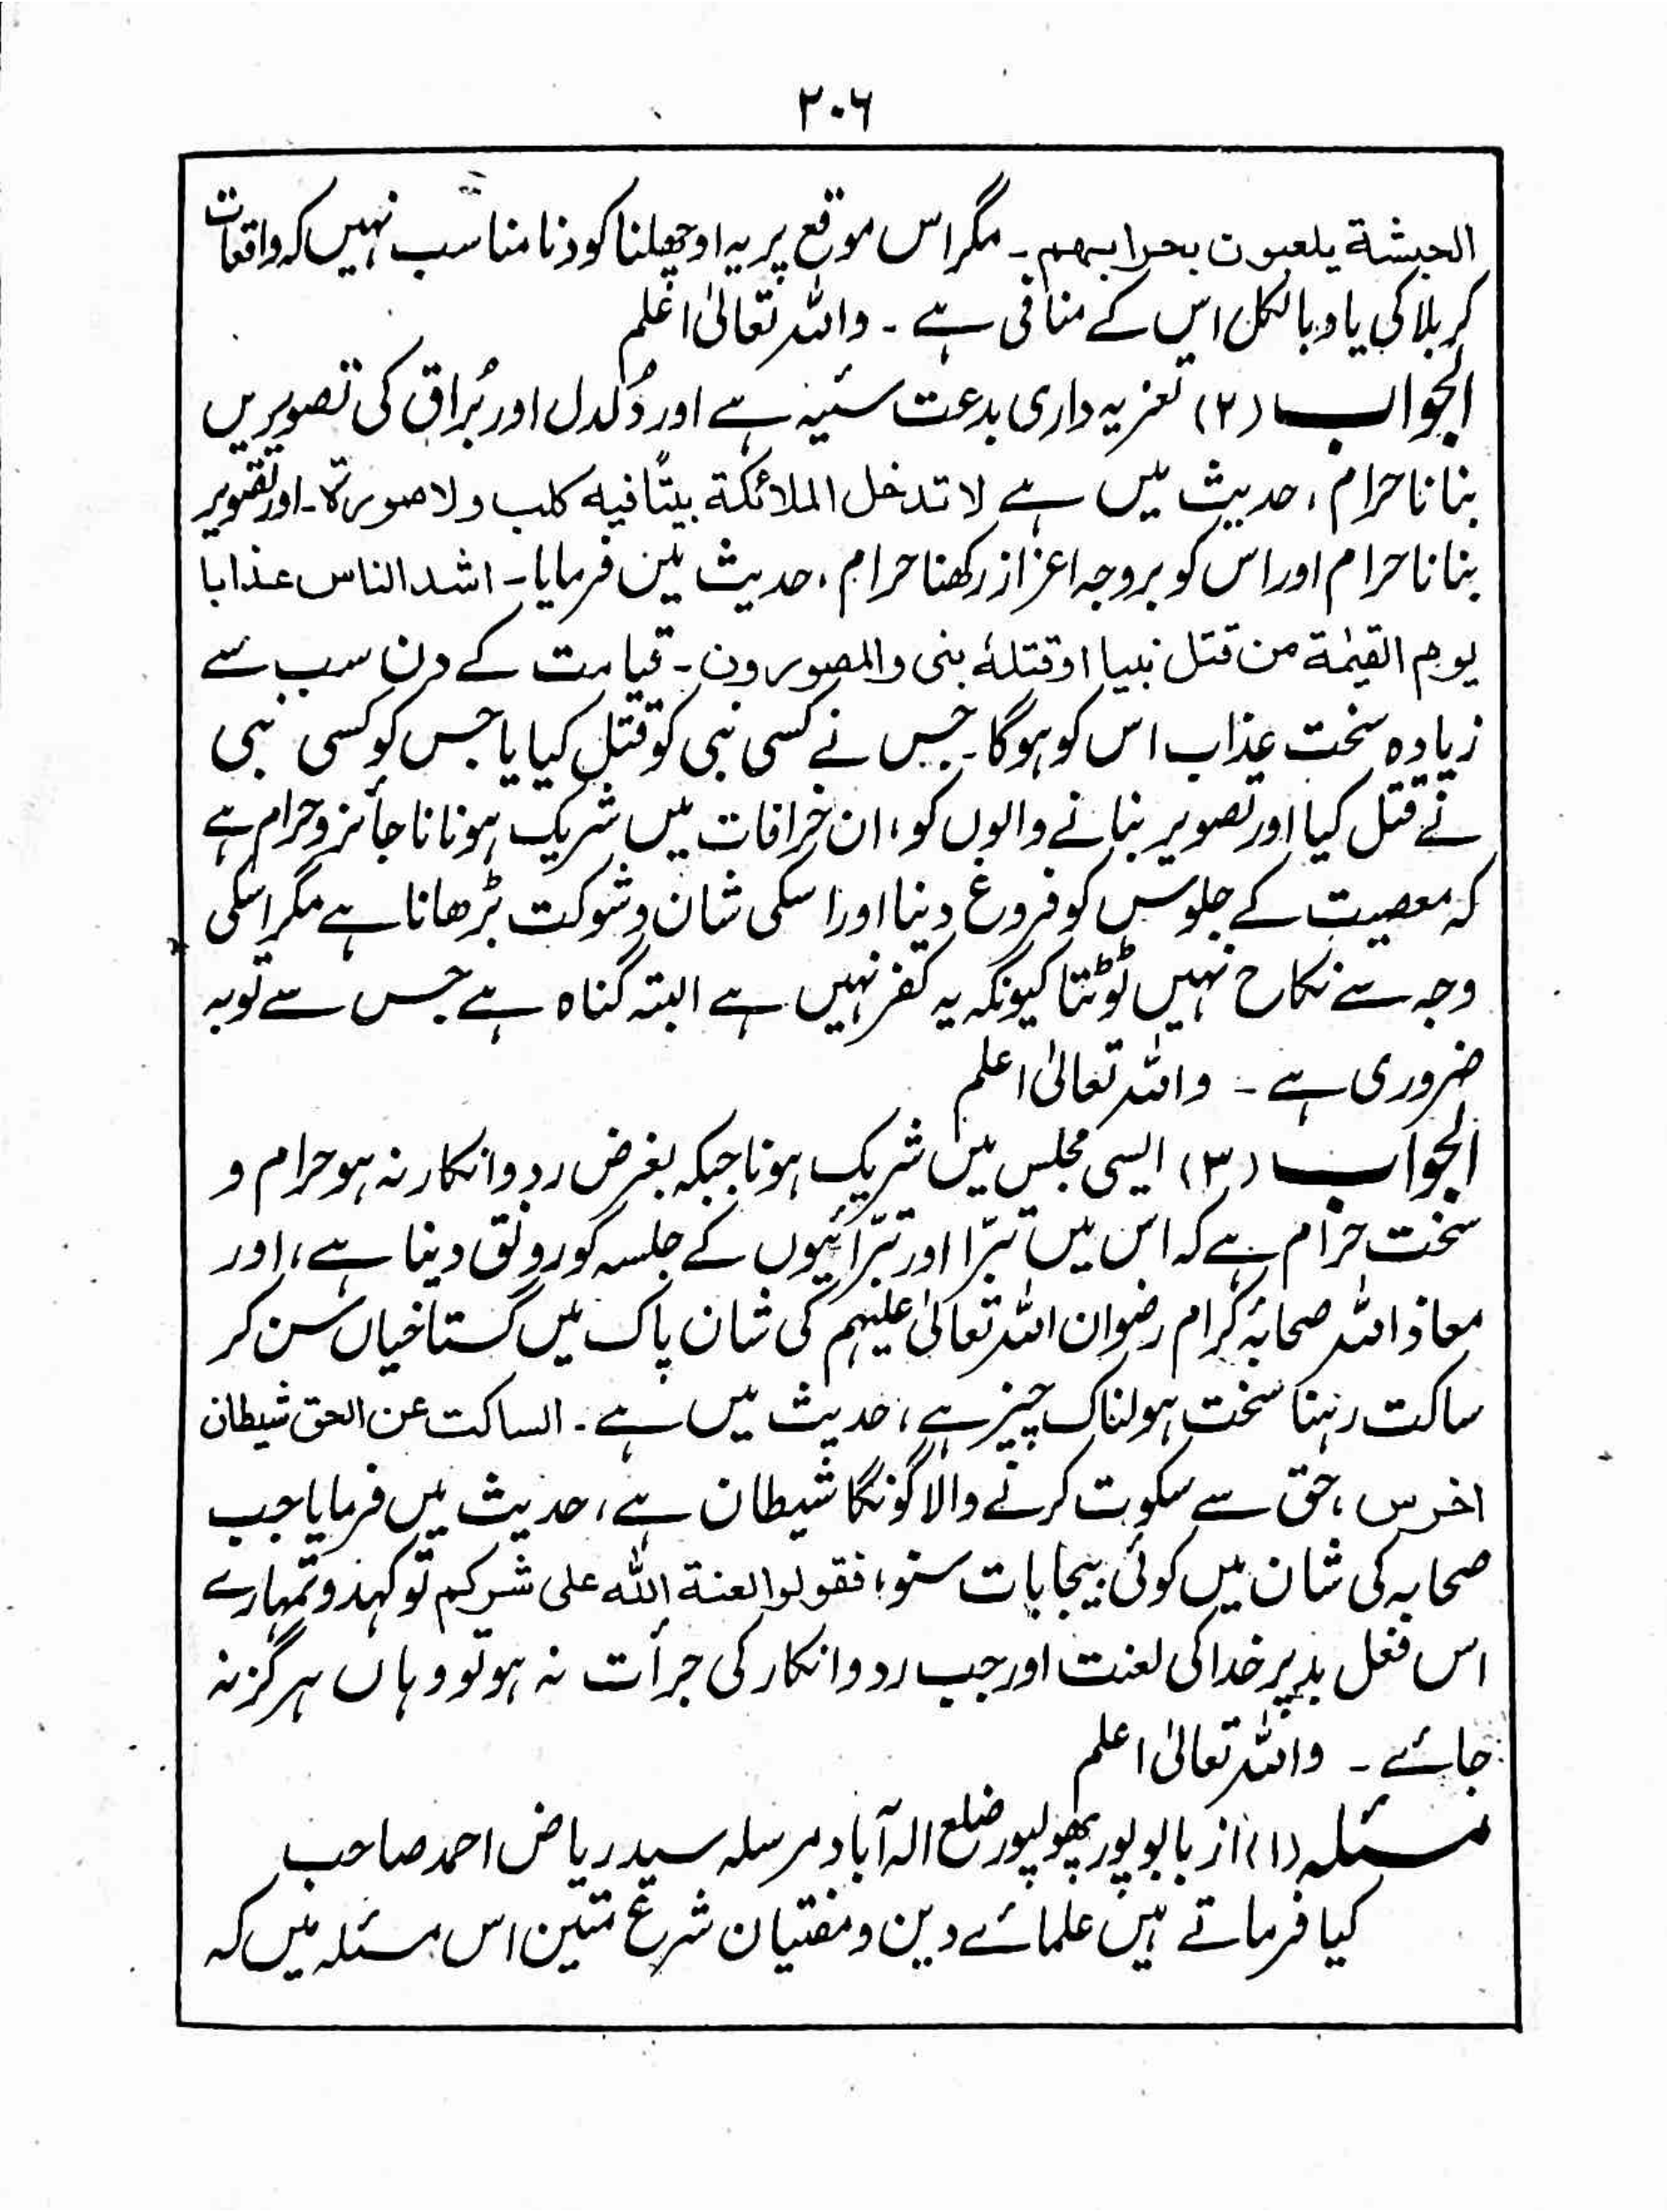 ۲۰۶
الحبشة یلعبون بحرابہم۔ مگر اس موقع پر یہ اوچھلنا کودنا مناسب نہیں کہ واقعات
کربلا کی یاد بالکل اس کے منافی ہے ۔ واللہ تعالیٰ اعلم
الجواب (۲) تعزیہ داری بدعت سئیہ ہے اور دُلدل اور بُراق کی تصویریں
بنانا حرام ، حدیث میں ہے لا تدخل الملائکة بیتًا فیه کلب ولا صورة۔ اور تصویر
بنانا حرام اور اس کو بروجہ اعزاز رکھنا حرام ، حدیث میں فرمایا۔ اشد الناس عذابا
یوم القیٰمة من قتل نبیا او قتلهٗ بنی والمصورون ۔ قیامت کے دن سب سے
زیادہ سخت عذاب اس کو ہوگا۔ جس نے کسی نبی کو قتل کیا یا جس کو کسی نبی
نے قتل کیا اور تصویر بنانے والوں کو ، ان خرافات میں شریک ہونا ناجائز و حرام ہے
کہ معصیت کے جلوس کو فروغ دینا اور اسکی شان و شوکت بڑھانا ہے مگر اسکی
وجہ سے نکاح نہیں ٹوٹتا کیونکہ یہ کفر نہیں ہے البتہ گناہ ہے جس سے توبہ
ضروری ہے ۔ واللہ تعالیٰ اعلم
الجواب (۳) ایسی مجلس میں شریک ہونا جبکہ بغرض رد و انکار نہ ہو حرام و
سخت حرام ہے کہ اس میں تبرّا اور تبرّائیوں کے جلسہ کو رونق دینا ہے ، اور
معاذ اللہ صحابۂ کرام رضوان اللہ تعالیٰ علیہم کی شان پاک میں گستاخیاں سن کر
ساکت رہنا سخت ہولناک چیز ہے ، حدیث میں ہے ۔ الساکت عن الحق شیطان
اخرس ، حق سے سکوت کرنے والا گونگا شیطان ہے ، حدیث میں فرمایا جب
صحابہ کی شان میں کوئی بیجا بات سنو ، فقولوا لعنة الله علی شرکم تو کہدو تمہارے
اس فعل بد پر خدا کی لعنت اور جب رد و انکار کی جرأت نہ ہو تو وہاں ہرگز نہ
جائے ۔ واللہ تعالیٰ اعلم
مسئلہ (۱) از بابوپور پھولپور ضلع الہ آباد مرسلہ سید ریاض احمد صاحب
کیا فرماتے ہیں علمائے دین و مفتیان شرع متین اس مسئلہ میں کہ